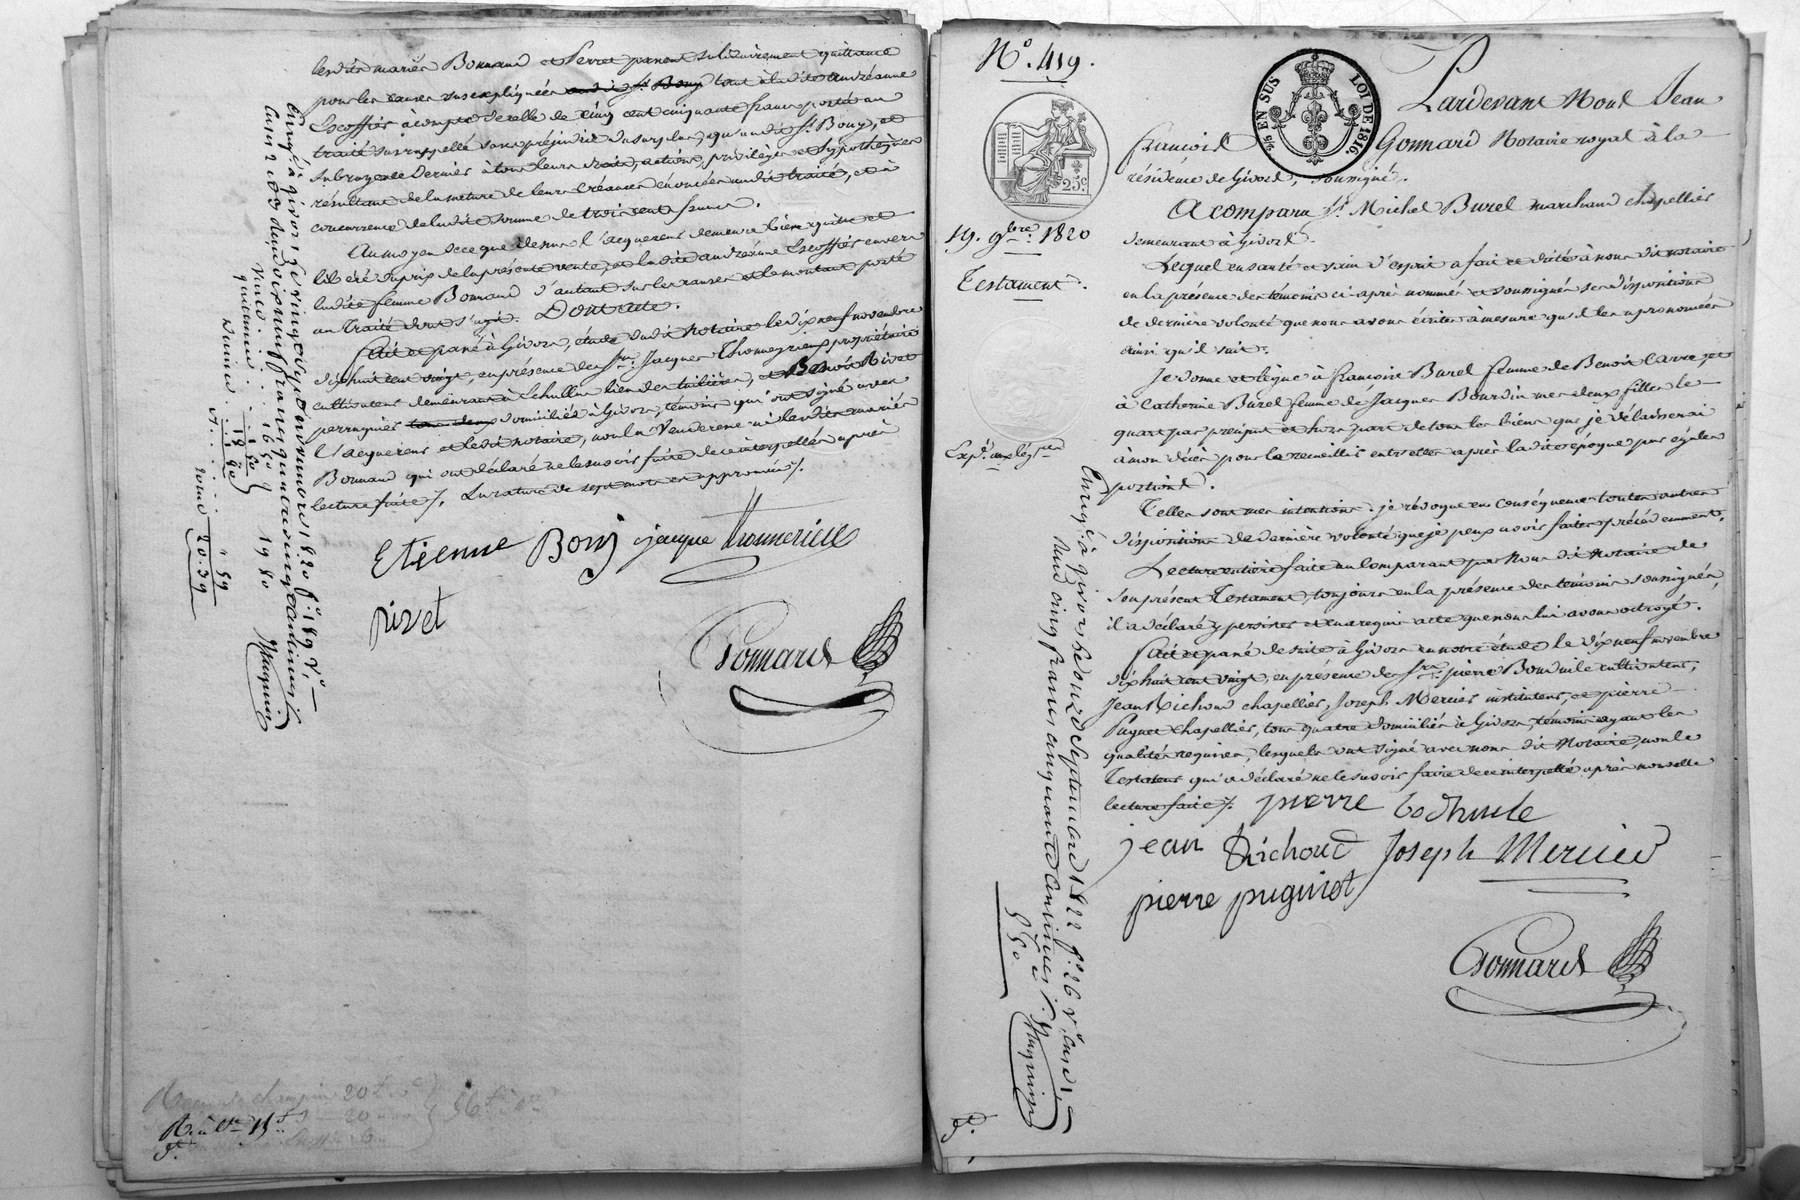 lesdits mariés Bonnand et Perret passent solidairement quittance
pour les causes susexpliquées audit Sr. Bony tout à ladite andréanne
Escoffier àcompte de celle de cinq cent cinquante francs portée au
traité susrappellé sans préjudice du surplus, qu'audit Sr. Bony, et
subrogent ce dernier à tous leurs droits, actions, privilèges et hypothèques
résultant de la nature de leurs créances énoncées audit traité, et à
concurrence de ladite somme de trois cent francs.
Au moyen de ce que dessus l'acquereur demeure bien quitte et
libéré du prix de la présente vente, et ladite andréanne Escoffier envers
ladite femme Bonnand d'autant sur les causes et le montant porté
au Traité dont s'agit. Dont acte.
Fait et passé à Givors, étude dudit Notaire le dix neuf novembre
dix huit cent vingt, en présence de Srs. Jacques Thonnerieux propriétaire
cultivateur demeurant à Echallas lieu des tuilières, et Benoit Rivet
perruquier domicilié à Givors, témoins qui ont signé avec
l'acquereur et ledit notaire, non la Venderesse ni lesdits mariés
Bonnand qui ont déclaré ne le savoir faire de ce interpellés après
lecture faite /. La rature de sept mots est approuvée /.
Etienne Bony jacque thonnerieux
rivet
Gonnard
Enregé. à givors le vingt deux novembre 1820 fo. 189 Vo.
Cases 2 et 3 Reçu dix neuf francs quatre vingt centimes
Vente . . . 16 50
quittance . . . 1 50
Decime . . . 18 00
1 80
19 80
" 59
20. 39
Magnin
R. à Vre 15 f
No. 419.
25c
EN SUS
LOI DE 1816.
Pardevant Nous Jean
François Gonnard Notaire royal à la
résidence de Givors, soussigné.
19. 9bre. 1820
Testament.
Expé. aux légres
A comparu Sr. Michel Burel marchand chapellier
demeurant à Givors.
Lequel en santé et sain d'esprit a fait et dicté à nous dit notaire
en la présence des témoins ci-après nommés et soussignés ses dispositions
de dernière volonté que nous avons écrites à mesure qu'il les a prononcées
ainsi qu'il suit.
Je donne et lègue à françoise Burel femme de Benoit Carre, et
à Catherine Burel femme de Jacques Bourdin mes deux filles le
quart par préciput et hors part de tous les biens que je délaisserai
à mon décès pour le recueillir entr'elles après ladite époque par égales
portions.
Telles sont mes intentions. je révoque en conséquence toutes autres
dispositions de dernière volonté que je peux avoir faites précédemment.
Lecture entière faite au Comparant par Nous dit Notaire de
son présent Testament, toujours en la présence des témoins soussignés,
il a déclaré y persister et en a requis acte que nous lui avons octroyé.
Fait et passé de suite à Givors en notre étude le dix neuf novembre
dix huit cent vingt, en présence de Srs. pierre Bodhuile cultivateur,
Jean Richoud chapellier, Joseph Mercier instituteur, et pierre
Puguet chapellier, tous quatre domiciliés à Givors, témoins ayant les
qualités requises, lesquels ont signé avec nous dit Notaire, non le
Testateur qui a déclaré ne le savoir faire de ce interpellé après nouvelle
lecture faite /. pierre bodhuile
jean Richoud Joseph Mercier
pierre puguiot
Gonnard
Enregé. à Givors le douze Septembre 1822 fo. 26 Vo. Case 1re
Reçu cinq francs cinquante Centimes /. Magnin
5 50